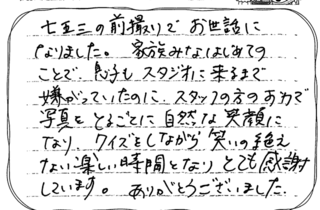 七五三の前撮りで お世話に
なりました。 家族みなはじめての
ことで 息子も スタジオに来るまで
嫌がっていたのに、スタッフの方のお力で
写真をとるごとに 自然な笑顔に
なり、クイズをしながら 笑いの絶え
ない楽しい時間となり とても感謝
しています。 ありがとうございました。